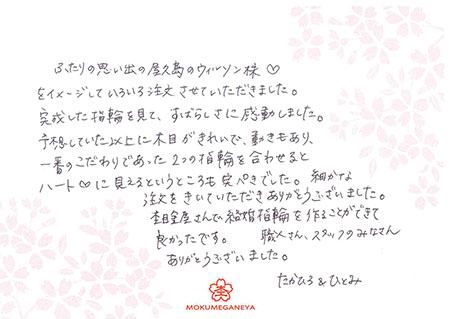 ふたりの思い出の屋久島のウィルソン株♡
をイメージしていろいろ注文させていただきました。
完成した指輪を見て、すばらしさに感動しました。
予想していた以上に木目がきれいで、動きもあり、
一番のこだわりであった2つの指輪を合わせると
ハート♡に見えるというところも完ぺきでした。細かな
注文をきいていただきありがとうございました。
杢目金屋さんで結婚指輪を作ることができて
良かったです。 職人さん、スタッフのみなさん
ありがとうございました。
たかひろ&ひとみ
杢
MOKUMEGANEYA